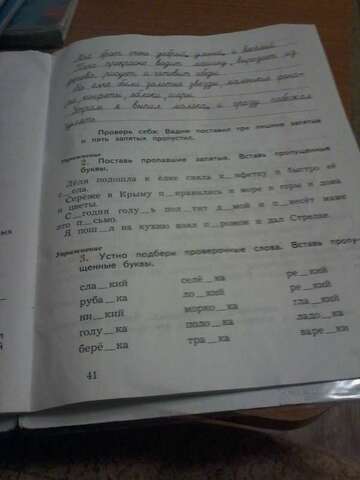 Мой брат Тима добрый, умный, и весёлый.
Тима прекрасно водит машину, вырезает из
дерева, рисует и готовит обед.
На ёлке были золотые звёзды, маленькие
конфеты яблоки, шары.
Утром я выпил молока, и сразу побежал
гулять.
Проверь себя: Вадим поставил три лишние запятые
и пять запятых пропустил.
Упражнение
2. Поставь пропавшие запятые. Вставь пропущенные
буквы.
Лёля подошла к ёлке сняла к__нфетку и быстро её
с__ела.
Серёже в Крыму п__нравились и море и горы и дома
и цветы.
С__годня голу__ь пол__тит д__мой и п__несёт маме
это п__сьмо.
Я пош__л на кухню взял п__рожок и дал Стрелке.
Упражнение
3. Устно подбери проверочные слова. Вставь пропу-
щенные буквы.
сла__кий селё__ка ре__кий
руба__ка ло__кий ре__кий
ни__кий морко__ка гла__кий
голу__ка поло__ка ладо__ка
берё__ка тра__ка варе__ки
41